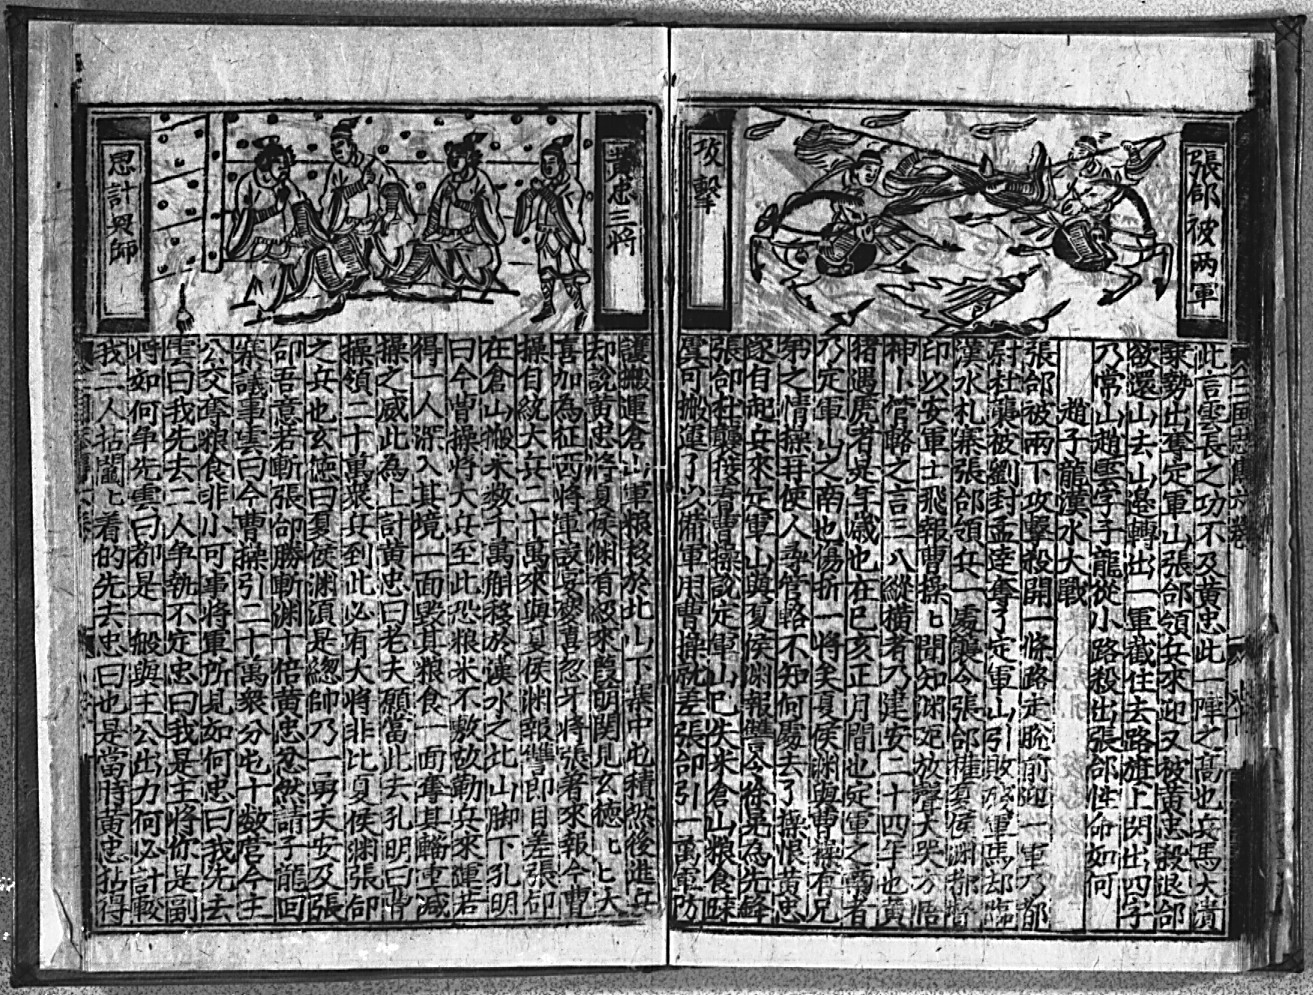 張郃被兩軍
攻擊
此言雲長之功不及黃忠此一陣之高也兵馬大潰
乘勢出奪定軍山張郃領兵來迎又被黃忠殺退郃
敗還山去山邉轉出一軍截住去路旗上閃出四字
乃常山趙雲字子龍從小路殺出張郃性命如何
趙子龍漢水大戰
張郃被兩下攻擊殺開一條路走脫前迎一軍乃都
尉杜襲被劉封孟達奪了定軍山引敗殘軍馬却臨
漢水札寨張郃領兵一處襲令張郃權夏侯淵都督
印以安軍士飛報曹操匕聞知淵死放聲大哭方悟
神卜管輅之言三八縱橫者乃建安二十四年也黃
猪遇虎者是年歲也在巳亥正月間也定軍之南者
乃定軍山之南也傷折一將矣夏侯淵與曹操有兄
弟之情操尋使人尋管輅不知何處去了操恨黃忠
遂自起兵來定軍山與夏侯淵報讐令徐晃為先鋒
張郃杜襲接着曹操說定軍山已失米倉山粮食
可搬運了以備軍用曹操就差張郃引一萬軍防
黃忠三將
思計點師
護搬運倉山軍粮移於北山下寨中屯積然後進兵
却說黃忠將夏侯淵首級來葭萌関見玄德匕匕大
喜加為征西將軍設宴慶喜忽牙將張著來報今曹
操自統大兵二十萬來與夏侯淵報讐即目差張郃
在倉山搬米数千萬斛移於漢水之北山脚下孔明
曰今曹操將大兵至此恐粮米不敷故勒兵來運若
得一人深入其境一面毀其粮食一面奪其輜重减
操之威此為上計黃忠曰老夫願當此去孔明曰曹
操領二十萬衆兵到此必有大將非比夏侯淵張郃
之兵也玄德曰夏侯淵須是總帥乃一勇夫安及張
郃吾意若斬張郃勝斬淵十倍黃忠忿然請子龍回
寨議事雲曰今曹操引二十萬衆分屯十数營今主
公交奪粮食非小可事將軍所見如何忠曰我先去
雲曰我先去二人爭執不定忠曰我是主將你是副
將如何争先雲曰都是一般與主公出力何必計較
我二人拈鬮匕着的先去忠曰也是當時黃忠拈得